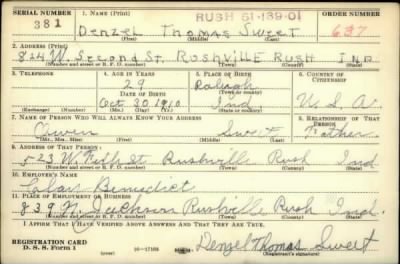 SERIAL NUMBER
1. NAME (Print)
RUSH 51-139-01
ORDER NUMBER
381
DENZEL THOMAS SWEET
637
(First) (Middle) (Last)
2. ADDRESS (Print)
824 W. SECOND ST. RUSHVILLE RUSH IND
(Number and street or R. F. D. number) (Town) (County) (State)
3. TELEPHONE
4. AGE IN YEARS
29
5. PLACE OF BIRTH
Raleigh
(Town or county)
6. COUNTRY OF CITIZENSHIP
DATE OF BIRTH
Oct 30 1910
Ind
U. S. A.
(Exchange) (Number)
(Mo.) (Day) (Yr.)
(State or country)
7. NAME OF PERSON WHO WILL ALWAYS KNOW YOUR ADDRESS
8. RELATIONSHIP OF THAT PERSON
Owen Sweet
Father
(Mr., Mrs., Miss) (First) (Middle) (Last)
9. ADDRESS OF THAT PERSON
523 W. St. Rushville Rush Ind
(Number and street or R. F. D. number) (Town) (County) (State)
10. EMPLOYER'S NAME
Benedict
11. PLACE OF EMPLOYMENT OR BUSINESS
839 N. Jackson Rushville Rush Ind.
(Number and street or R. F. D. number) (Town) (County) (State)
I AFFIRM THAT I HAVE VERIFIED ABOVE ANSWERS AND THAT THEY ARE TRUE.
REGISTRATION CARD
D. S. S. Form 1
(over)
16-17105
Denzel Thomas Sweet
(Registrant's signature)